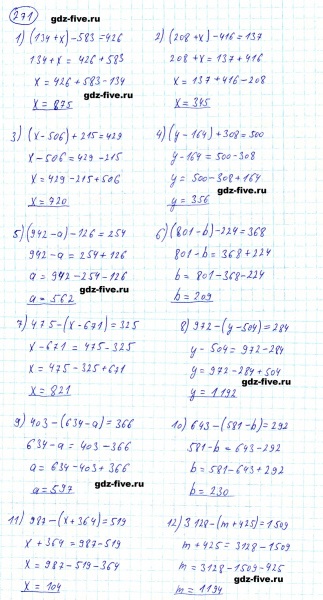 271
gdz-five.ru
1) (134+x)-583=426
134+x = 426+583
x = 426+583-134
gdz-five.ru
x = 875
2) (208+x)-416=137
208+x = 137+416
x = 137+416-208
x = 345
gdz-five.ru
3) (x-506)+215=429
x-506=429-215
x=429-215+506
x = 720
gdz-five.ru
4) (y-164)+308=500
y-164=500-308
y= 500-308+164
gdz-five.ru
y = 356
5) (942-a)-126=254
942-a = 254+126
a= 942-254-126
gdz-five.ru
a = 562
6) (801-b)-224=368
801-b = 368+224
b= 801-368-224
b= 209
gdz-five.ru
7) 475-(x-671)=325
x-671 = 475-325
x = 475-325+671
gdz-five.ru
x = 821
8) 972-(y-504)=284
y-504=972-284
y = 972-284+504
y= 1192
gdz-five.ru
9) 403-(634-a)=366
634-a = 403-366
a= 634-403+366
a=597
gdz-five.ru
10) 643-(581-b)=292
581-b = 643-292
b= 581-643+292
b= 230
gdz-five.ru
11) 987-(x+364)=519
x+364=987-519
x= 987-519-364
x = 104
12) 3128-(m+425)=1509
m+425= 3128-1509
m= 3128-1509-425
gdz-five.ru
m= 1194